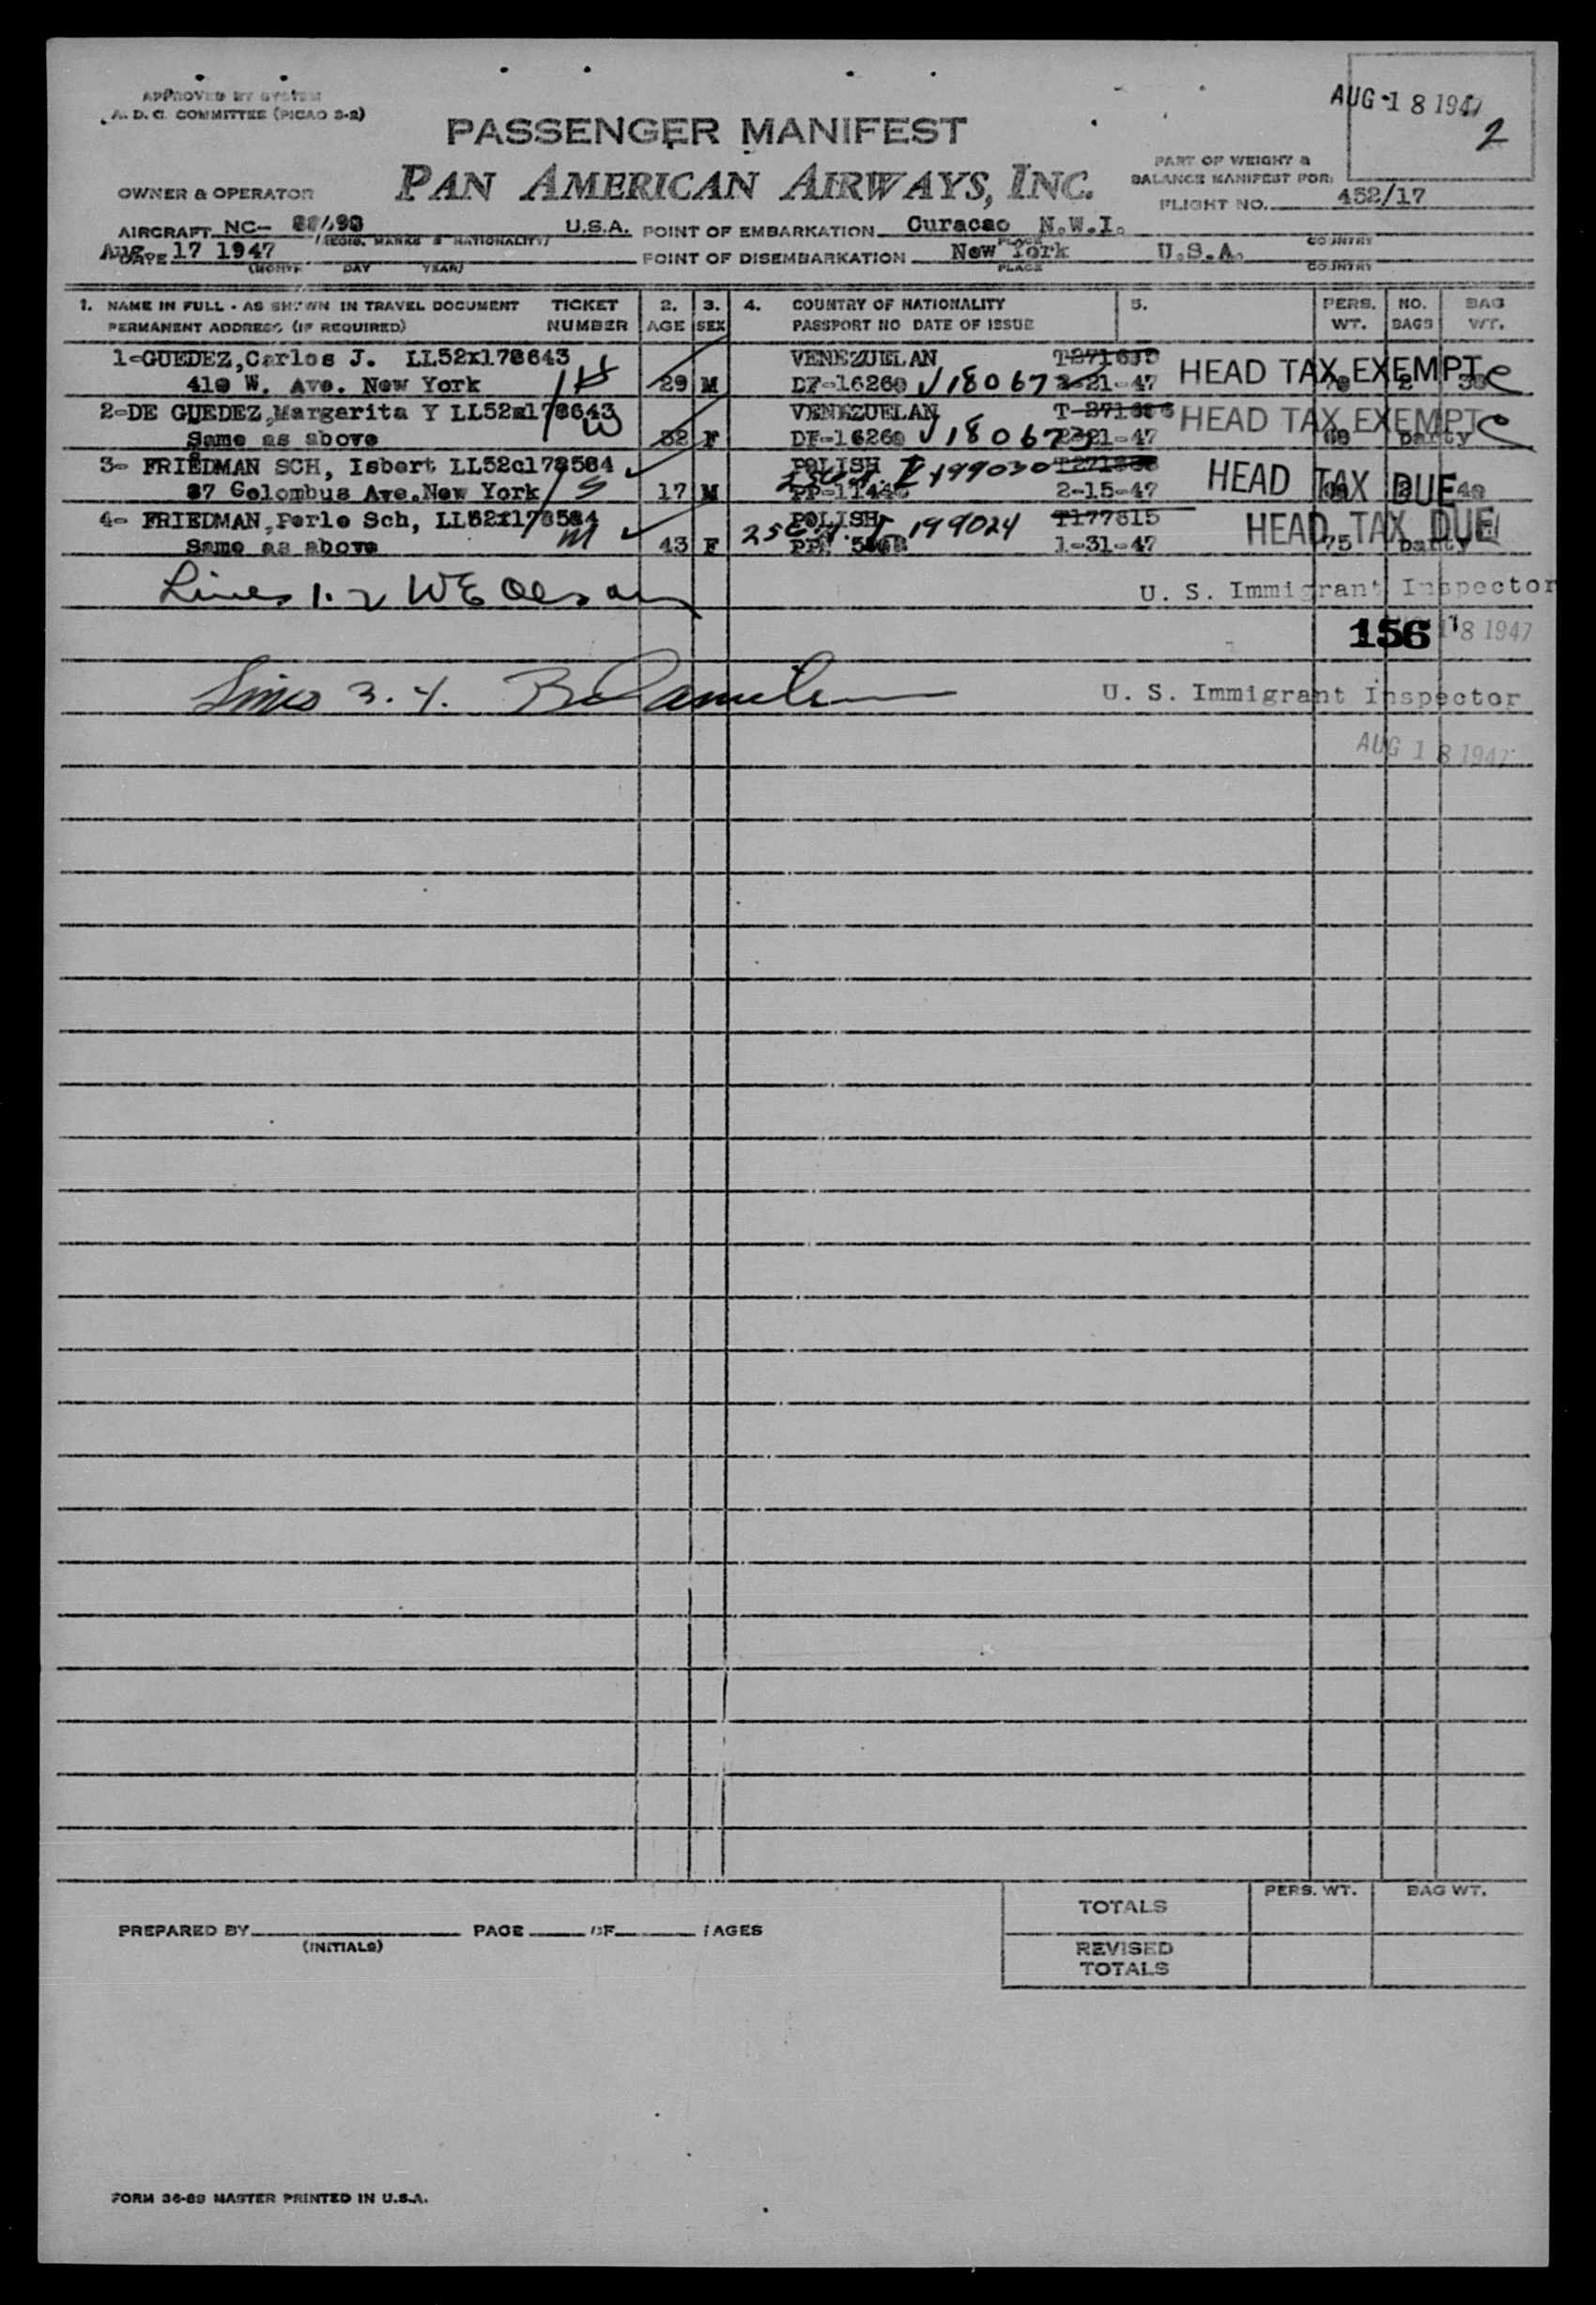 APPROVED BY SYSTEM
A. D. C. COMMITTEE (PICAO 3-2)
AUG 18 1947
2
PASSENGER MANIFEST
PAN AMERICAN AIRWAYS, INC.
OWNER & OPERATOR
PART OF WEIGHT &
BALANCE MANIFEST FOR:
FLIGHT NO. 452/17
AIRCRAFT NC- U.S.A. POINT OF EMBARKATION Curacao N.W.I.
(REGIS. MARKS & NATIONALITY) PLACE COUNTRY
DATE Aug. 17 1947 POINT OF DISEMBARKATION New York U.S.A.
(MONTH DAY YEAR) PLACE COUNTRY
1. NAME IN FULL - AS SHOWN IN TRAVEL DOCUMENT TICKET 2. 3. 4. COUNTRY OF NATIONALITY 5. PERS. NO. BAG
PERMANENT ADDRESS (IF REQUIRED) NUMBER AGE SEX PASSPORT NO DATE OF ISSUE WT. BAGS WT.
1-GUEDEZ, Carlos J. LL52x178643 VENEZUELAN HEAD TAX EXEMPT
410 W. Ave. New York H 29 M DF-16260 V18067 3-21-47 2
2-DE GUEDEZ, Margarita Y LL52x178643 VENEZUELAN HEAD TAX EXEMPT
Same as above W 32 F DF-16260 V18067 3-21-47 party
3- FRIEDMAN SCH, Isbert LL52c178584 POLISH I 199030 HEAD TAX DUE
87 Colombus Ave. New York S 17 M 2-15-47
4- FRIEDMAN, Perle Sch, LL52x178584 POLISH I 199024 T177615 HEAD TAX DUE
Same as above M 43 F 1-31-47 75 party
Lines 1-2 WE Olson U. S. Immigrant Inspector
156 18 1947
Lines 3.4. U. S. Immigrant Inspector
AUG 18 1947
PERS. WT. BAG WT.
TOTALS
PREPARED BY PAGE OF PAGES
(INITIALS)
REVISED
TOTALS
FORM 36-89 MASTER PRINTED IN U.S.A.